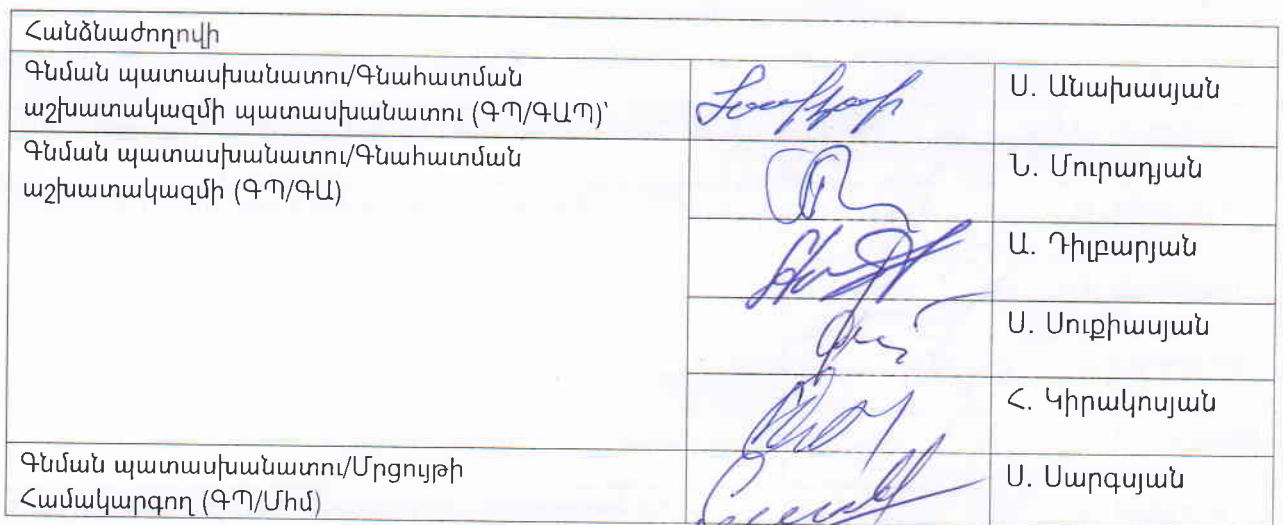 Հանձնաժողովի
Գնման պատասխանատու/Գնահատման
աշխատակազմի պատասխանատու (ԳՊ/ԳԱՊ)՝
Ս. Անախասյան
Գնման պատասխանատու/Գնահատման
աշխատակազմի (ԳՊ/ԳԱ)
Ն. Մուրադյան
Ա. Դիլբարյան
Ս. Սուքիասյան
Հ. Կիրակոսյան
Գնման պատասխանատու/Մրցույթի
Համակարգող (ԳՊ/Մհմ)
Ս. Սարգսյան